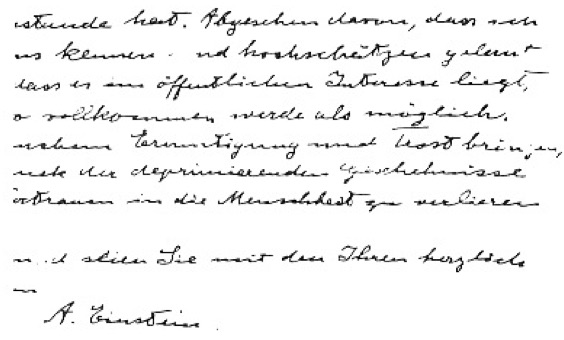 stunde hat. Abgesehen davon, dass ich
us kennen nd hochschätzen gelernt
dass es im öffentlichen Interesse liegt,
o vollkommen werde als möglich.
nehem Ermutigung und Trost bringen,
nek der deprimierenden Geschehnisse
örtrauen in die Menschheit zu verlieren
n d seien Sie mit den Ihren herzlich
A. Einstein.